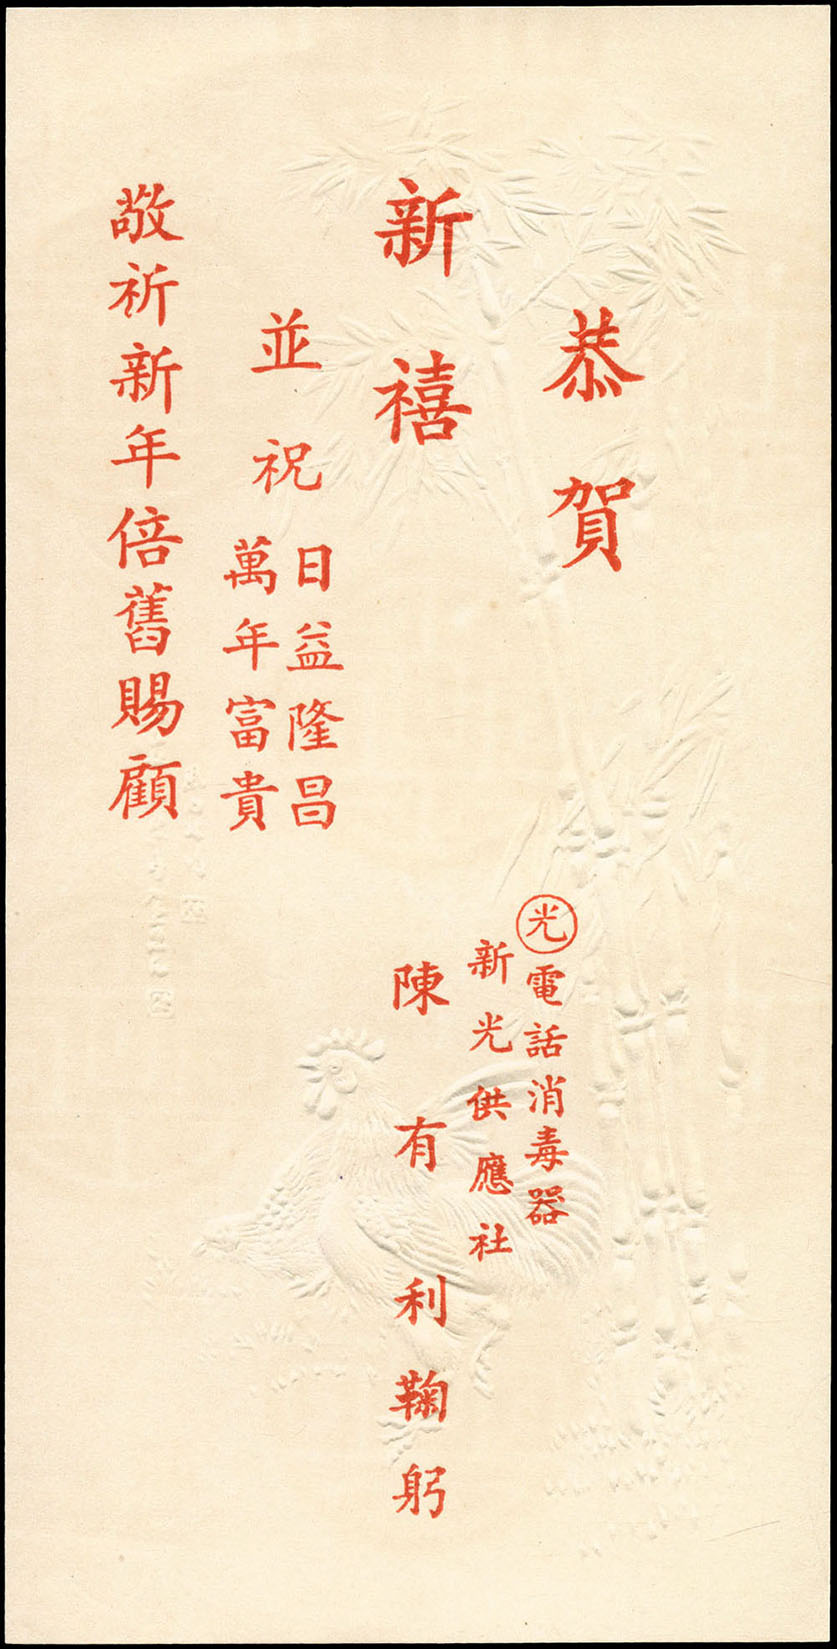 恭賀
新禧
並祝
日益隆昌
萬年富貴
敬祈新年倍舊賜顧
光 電話消毒器
新光供應社
陳有利鞠躬